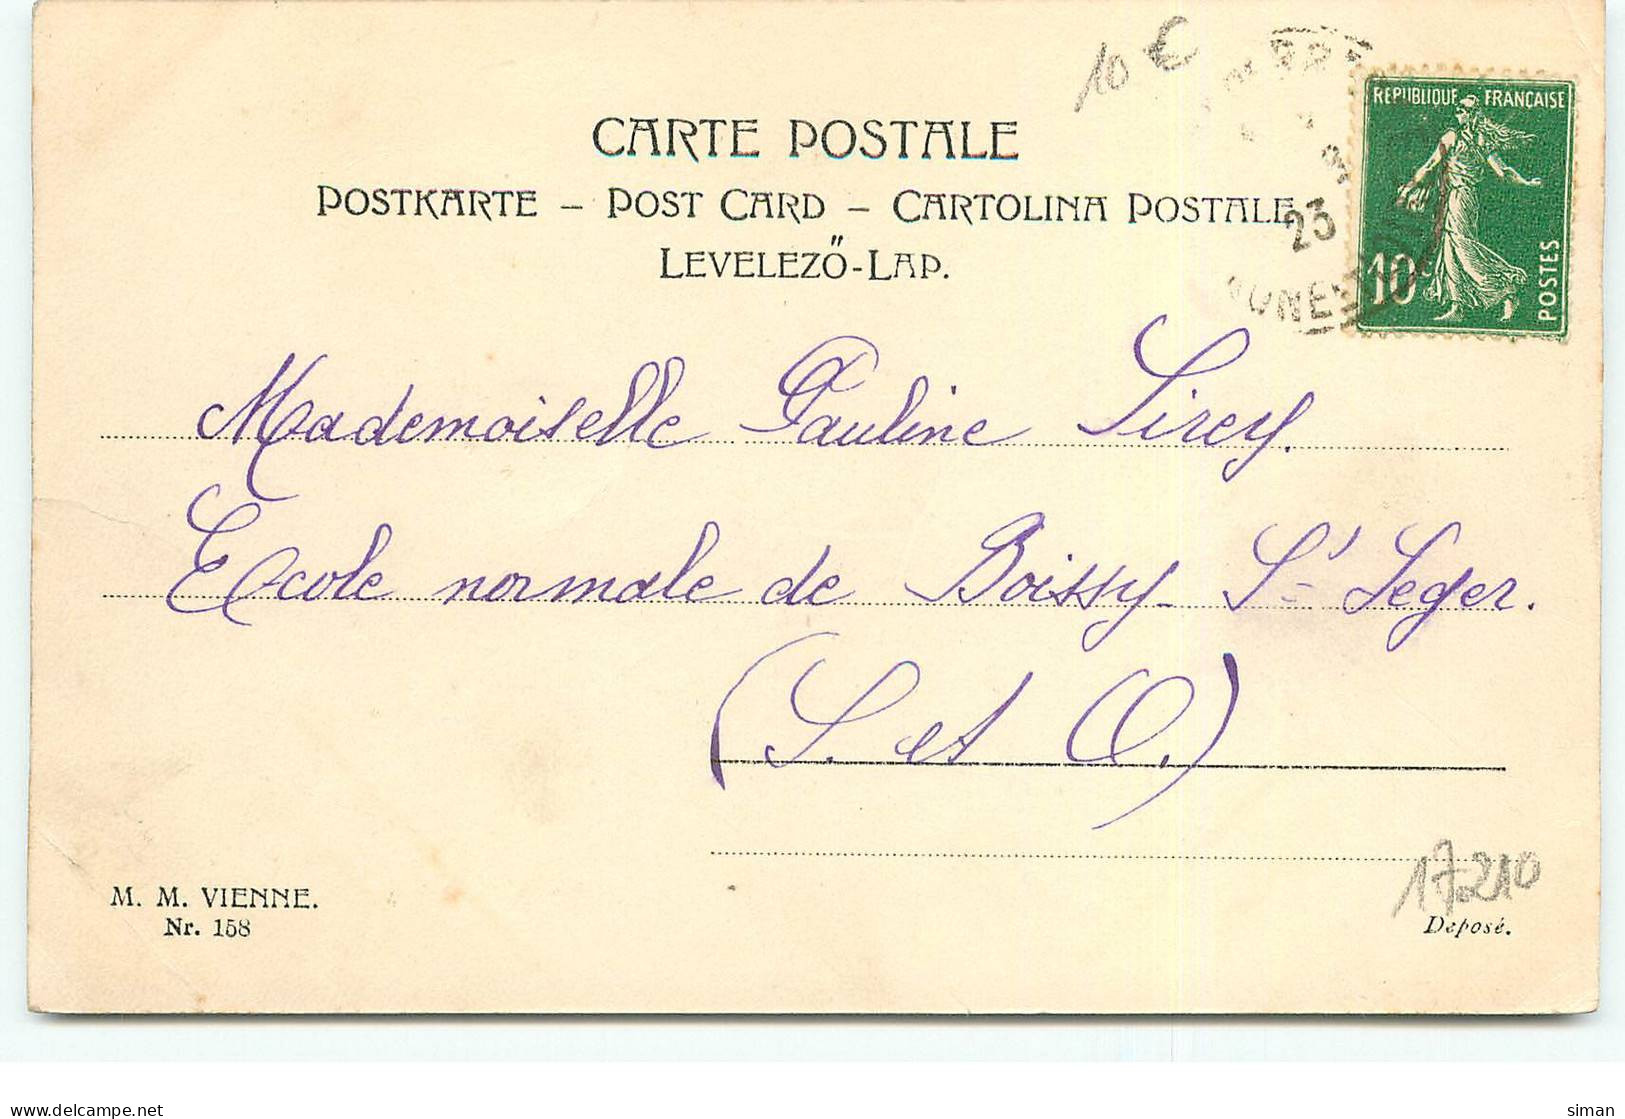 10 €
CARTE POSTALE
POSTKARTE – POST CARD – CARTOLINA POSTALE
LEVELEZŐ-LAP.
REPUBLIQUE FRANÇAISE
10c
POSTES
23
Mademoiselle Pauline Sirey.
Ecole normale de Boissy St Leger.
(S. et O.)
M. M. VIENNE.
Nr. 158
17210
Deposé.
delcampe.net
siman